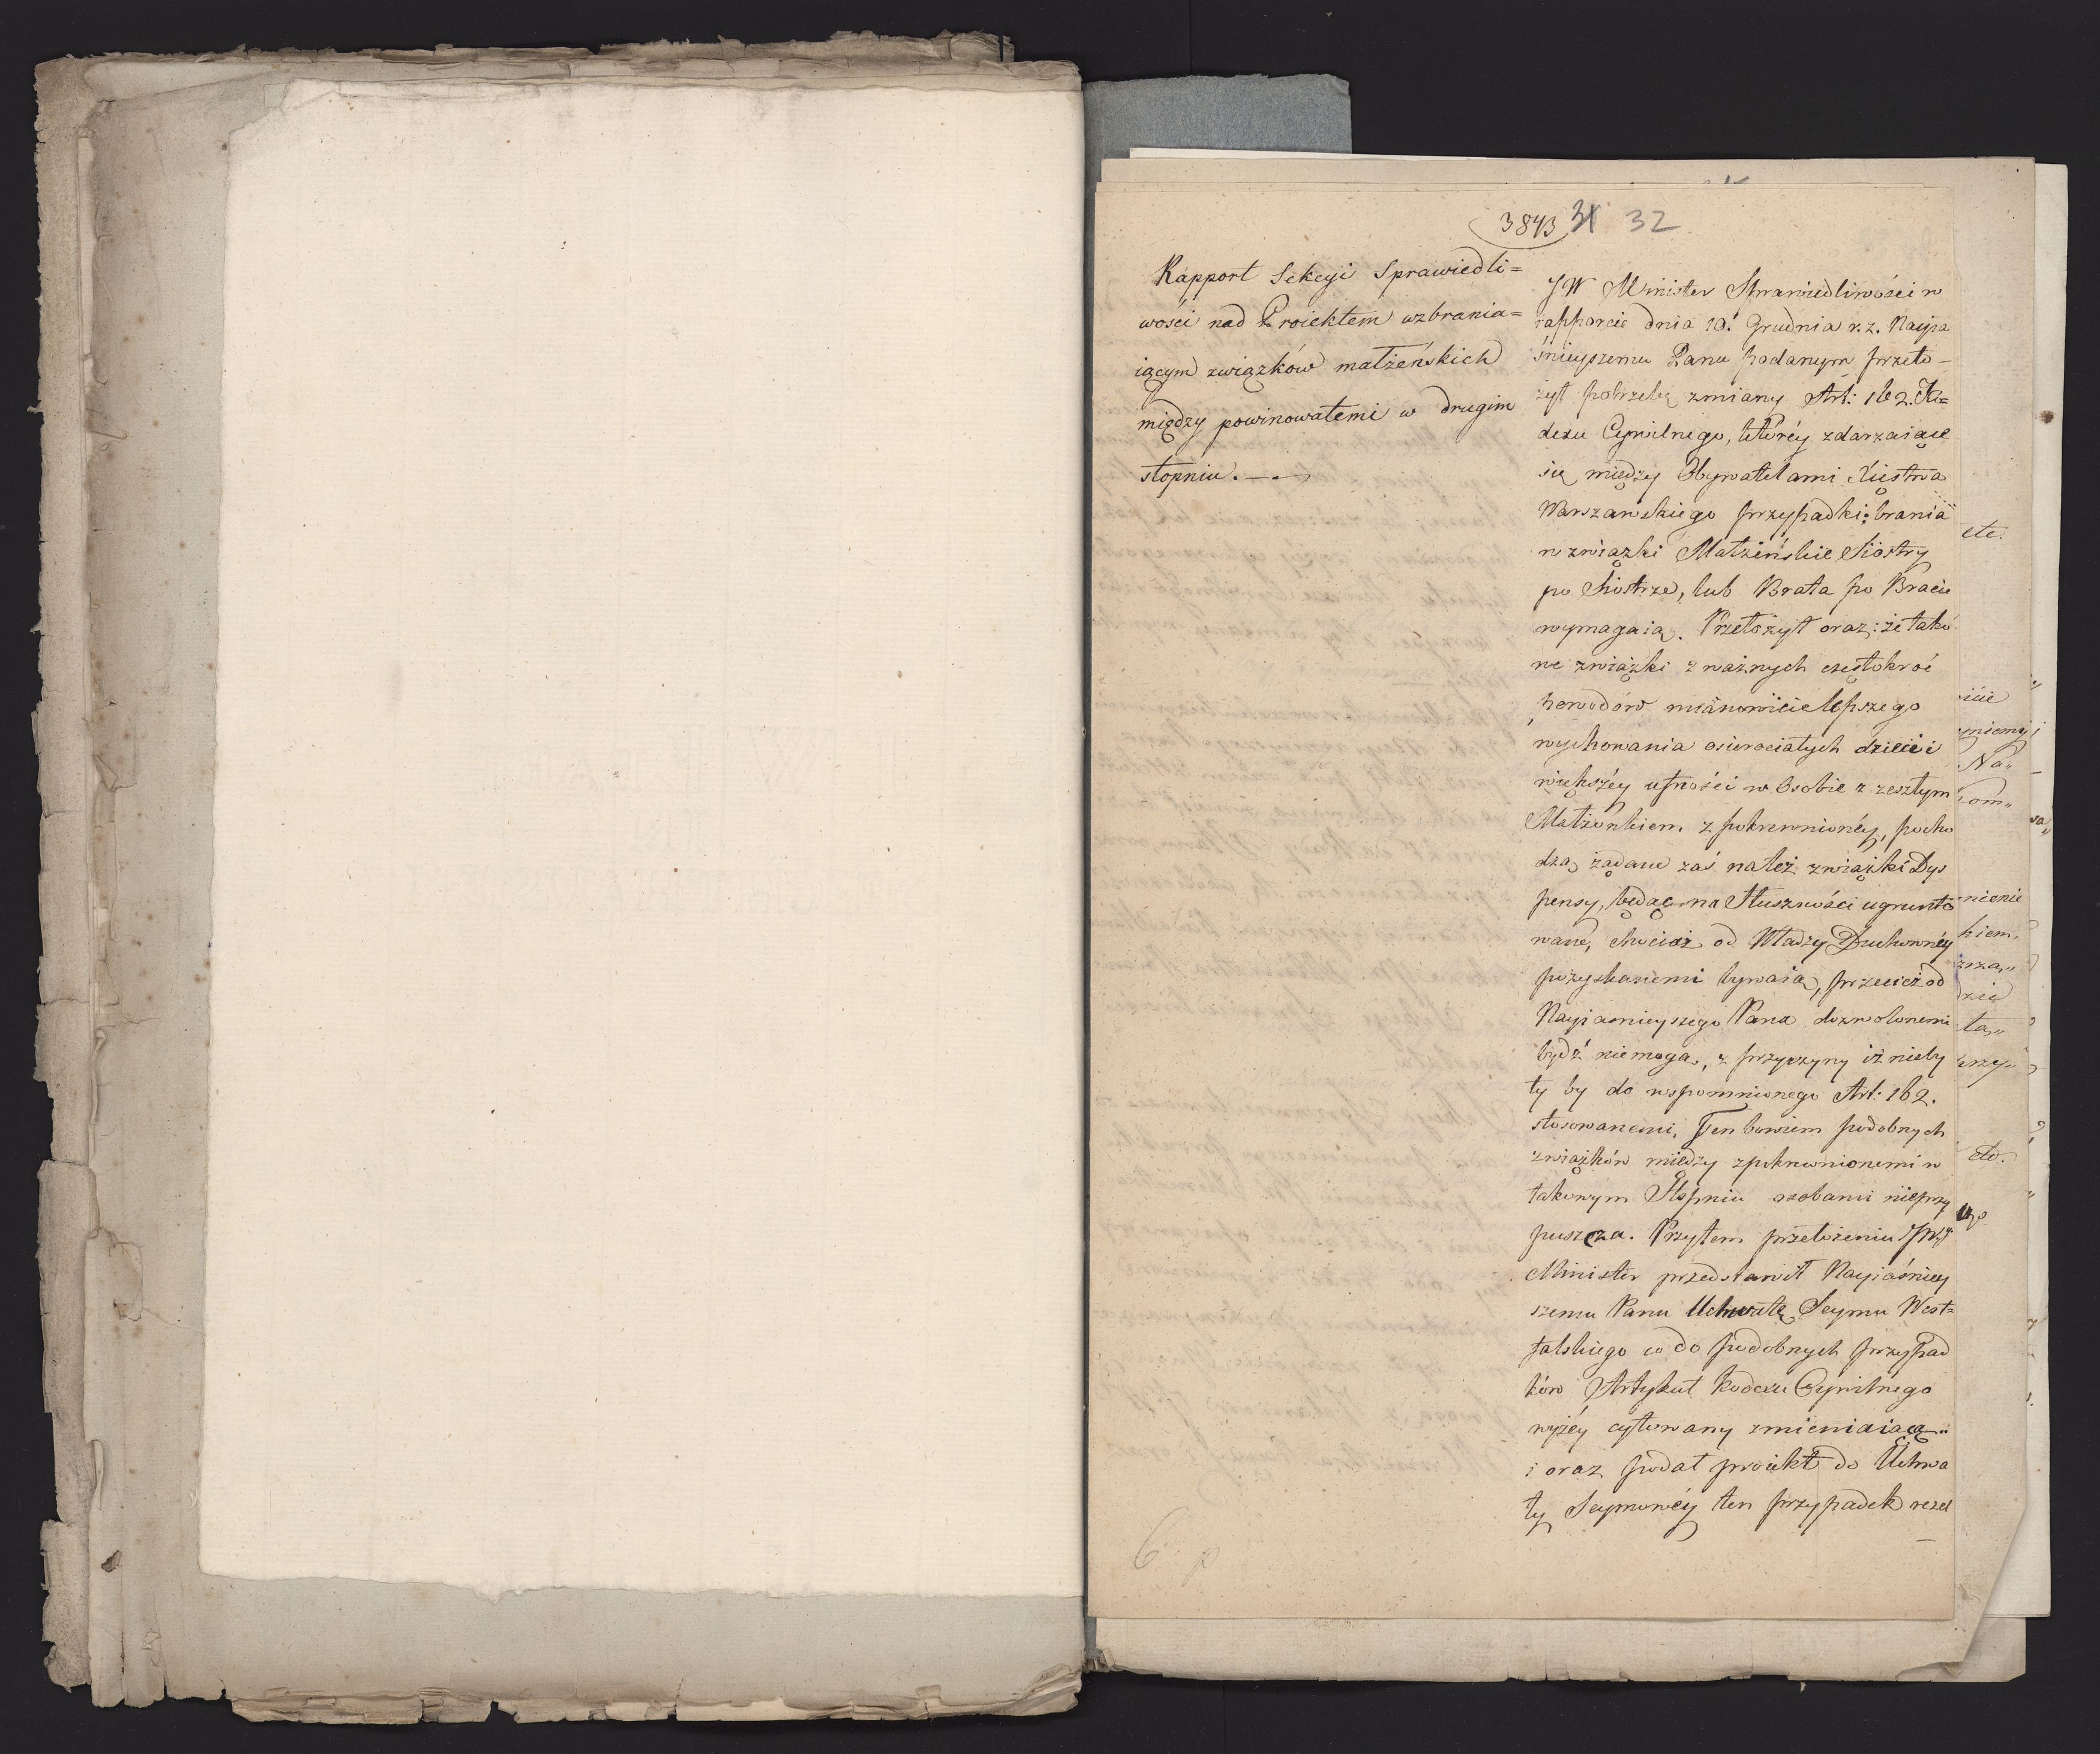 3843 31 32
Rapport Sekcyi Sprawiedli=
wości nad Proiektem wzbrania=
iącym związków małżeńskich
między powinowatemi w drugim
stopniu. —
JW Minister Sprawiedliwości w
rapporcie dnia 10. Grudnia r. z. Nayia
śnieyszemu Panu podanym przeło-
żył potrzebę zmiany Art: 162. Ko=
dexu Cywilnego, któréy zdarzaiące
się między Obywatelami Xięstwa
Warszawskiego przypadki: brania
w związki Małżeńskie Siostry
po Siostrze, lub Brata po Bracie
wymagaią. Przełożył oraz: że tako
we związki z ważnych częstokroć
powodów mianowicie lepszego
wychowania osierociałych dzieci i
większéy ufności w Osobie z zeszłym
Małżonkiem zpokrewnionéy, pocho
dzą, żądane zaś na też związki Dys
pensy, będąc na Słuszności ugrunto
wane, chociaż od Władzy Duchownéy
pozyskanemi bywaią, przecież od
Nayiaśnieyszego Pana dozwolonemi
bydź niemogą, z przyczyny iż nieby
ły by do wspomnionego Art: 162.
stosowanemi, Ten bowiem podobnych
związków między zpokrewnionemi w
takowym Stopniu osobami nieprzy
puszcza. Przytem przełożeniu JW
Minister przedstawił Nayiaśniey
szemu Panu Uchwałę Seymu West=
falskiego co do podobnych przypad
ków Artykuł Kodexu Cywilnego
wyżéy cytowany zmieniaiącą
i oraz podał proiekt do Uchwa
ły Seymowéy ten przypadek rozcl
6 p
etc.
Na
nienie
kiem
etc.